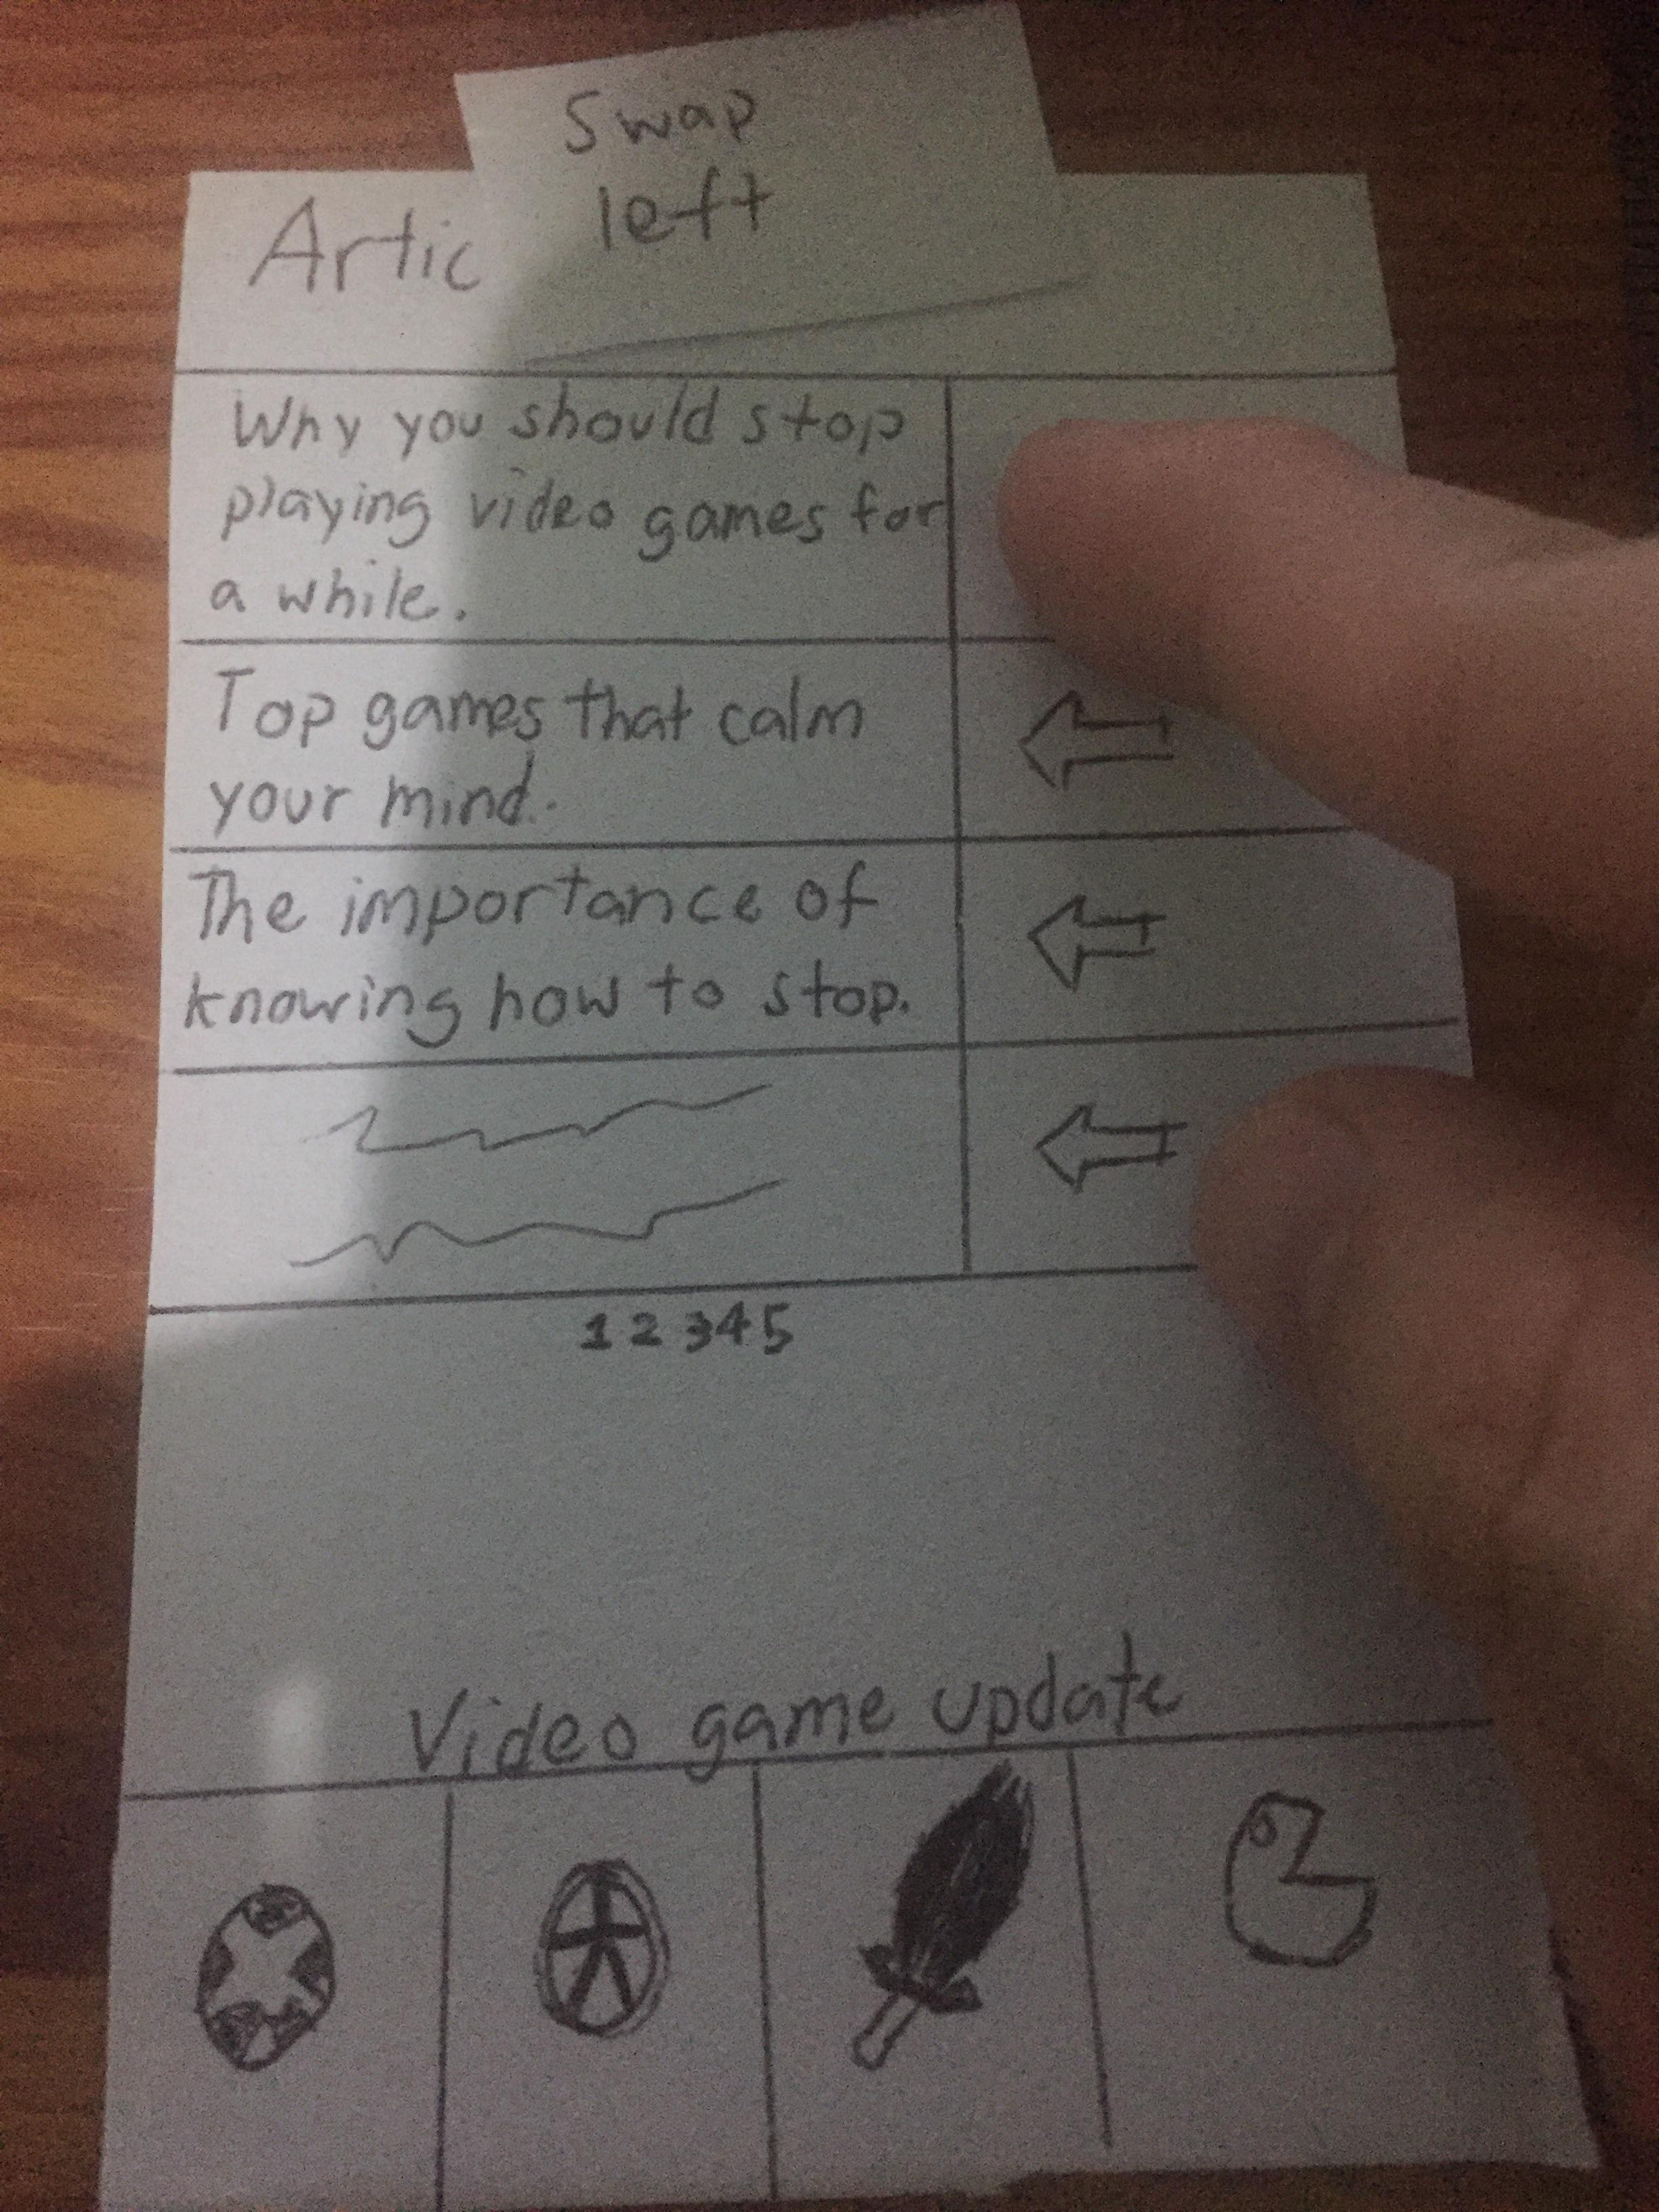 Swap
left
Artic
Why you should stop
playing video games for
a while.
Top games that calm
your mind.
The importance of
knowing how to stop.
1 2 3 4 5
Video game update